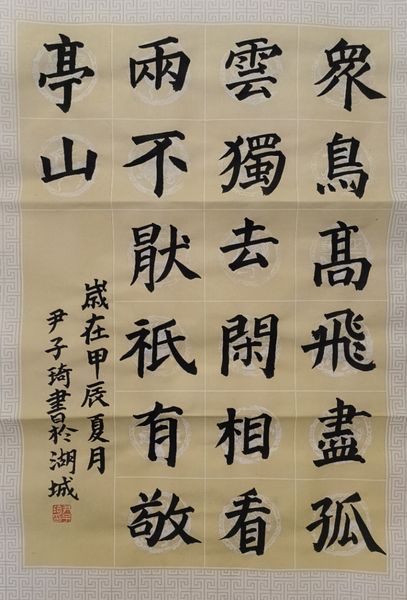 眾鳥髙飛盡孤
雲獨去閑相看
兩不厭祇有敬
亭山
歲在甲辰夏月
尹子琦書於湖城